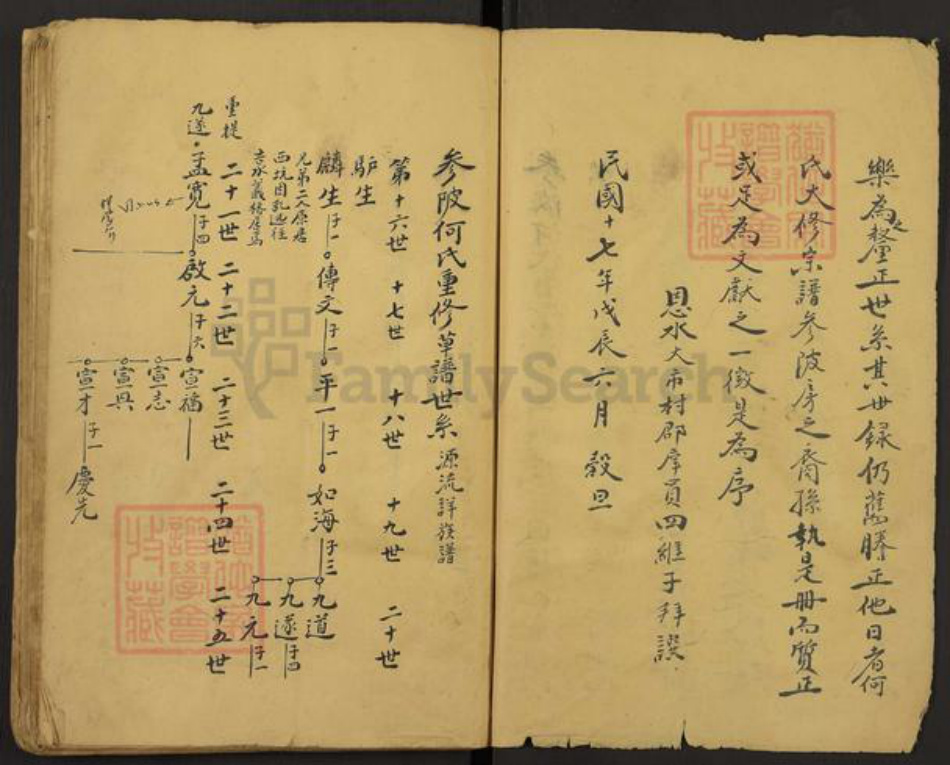 樂為釐正世系其世錄仍舊謄正他日者何
氏大修宗譜參陂房之裔孫執是冊而質正
或足為文獻之一徵是為序
恩水大市村郡庠員四維子拜譔
民國十七年戊辰六月穀旦
參陂何氏重修草譜世系源流詳族譜
第十六世 十七世 十八世 十九世 二十世
驴生
麟生子一 傳文子一 平一子一 如海子三 九道
兄弟二人原居
西坑因乱迯往
吉水
九遂子四
九元子一
重提 二十一世 二十二世 二十三世 二十四世 二十五世
九遂 孟寬子四 啟元子六 宣福
宣志
宣興
宣才子一 慶先
FamilySearch